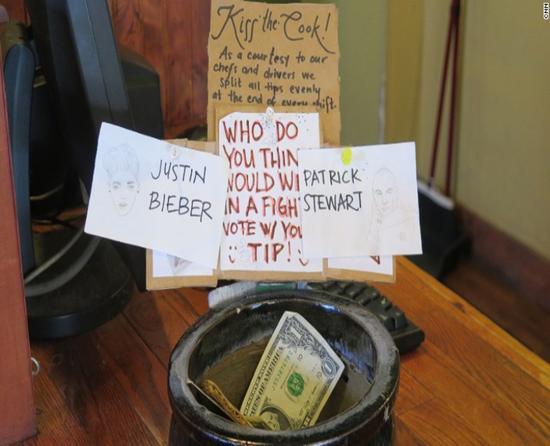 Kiss the Cook!
As a courtesy to our
chefs and drivers we
split all tips evenly
at the end of every shift.
WHO DO
YOU THIN
WOULD WI
IN A FIGHT
VOTE W/ YOU
TIP!
JUSTIN
BIEBER
PATRICK
STEWART
OF AMERICA
CNN